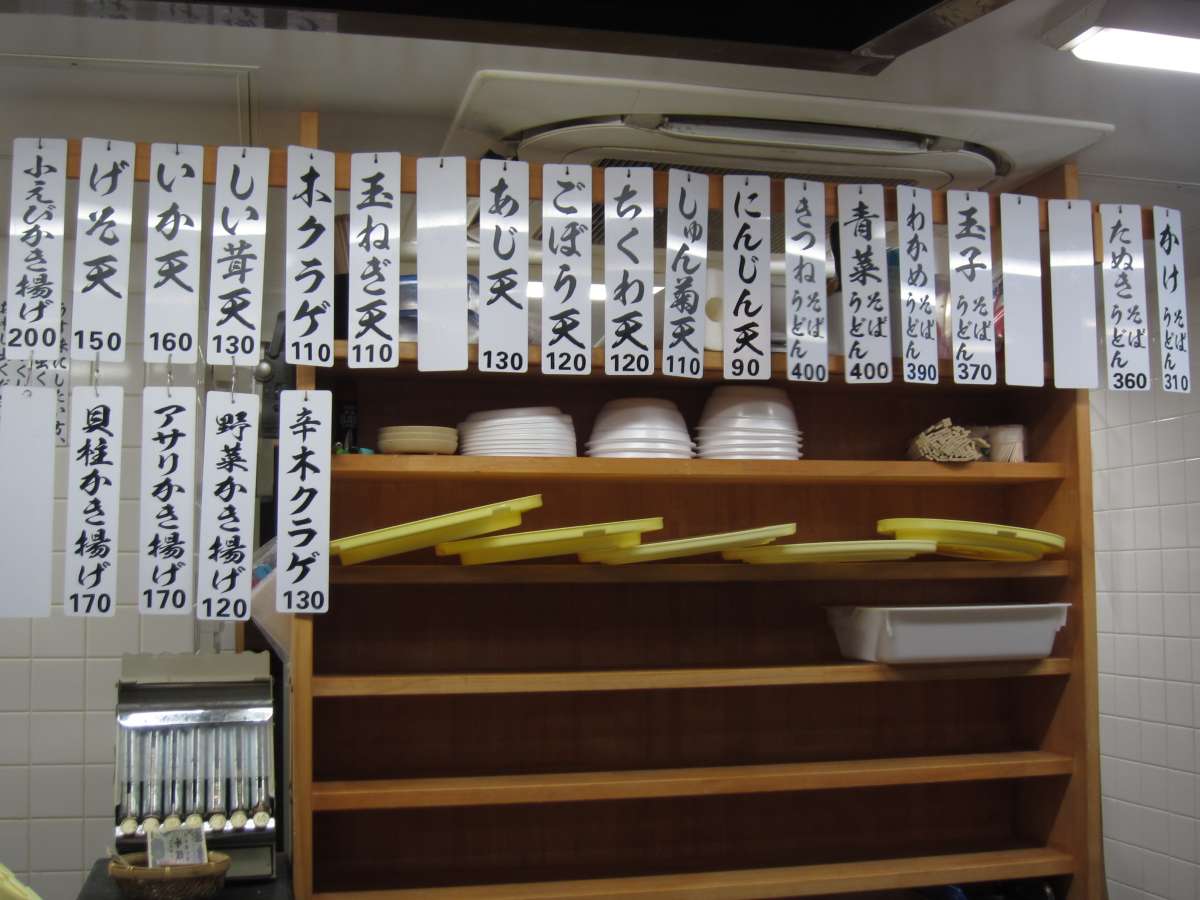 かけ そば うどん 310
たぬき そば うどん 360
玉子 そば うどん 370
わかめ そば うどん 390
青菜 そば うどん 400
きつね そば うどん 400
にんじん天 90
しゅん菊天 110
ちくわ天 120
ごぼう天 120
あじ天 130
玉ねぎ天 110
木クラゲ 110
しい茸天 130
いか天 160
げそ天 150
小えびかき揚げ 200
辛木クラゲ 130
野菜かき揚げ 120
アサリかき揚げ 170
貝柱かき揚げ 170